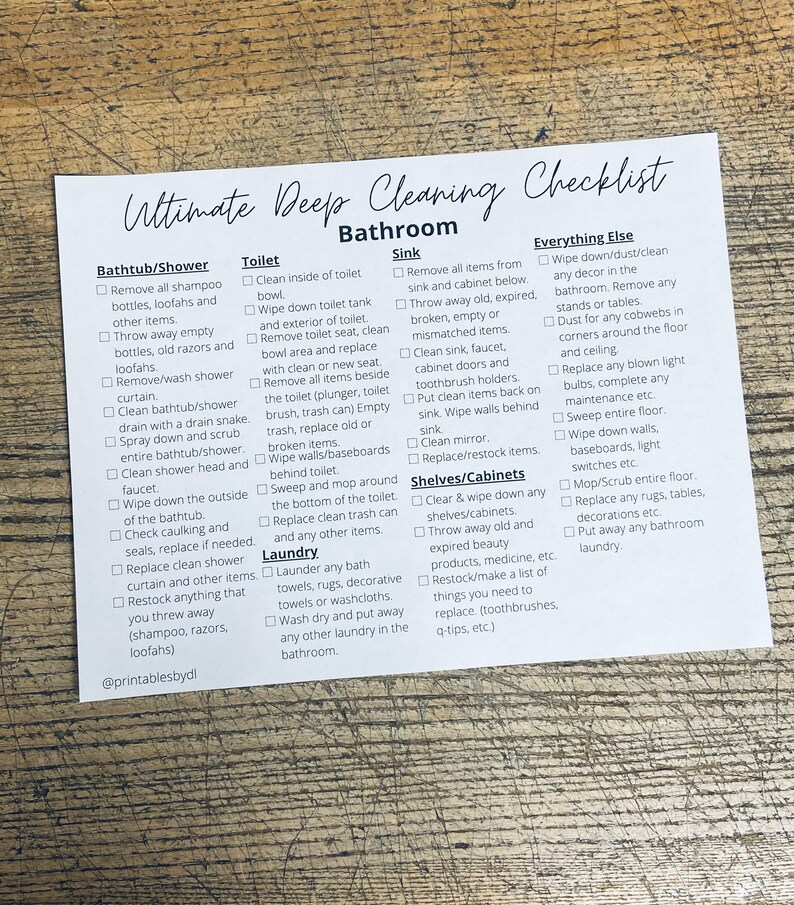 Ultimate Deep Cleaning Checklist
Bathroom
Bathtub/Shower
☐ Remove all shampoo
bottles, loofahs and
other items.
☐ Throw away empty
bottles, old razors and
loofahs.
☐ Remove/wash shower
curtain.
☐ Clean bathtub/shower
drain with a drain snake.
☐ Spray down and scrub
entire bathtub/shower.
☐ Clean shower head and
faucet.
☐ Wipe down the outside
of the bathtub.
☐ Check caulking and
seals, replace if needed.
☐ Replace clean shower
curtain and other items.
☐ Restock anything that
you threw away
(shampoo, razors,
loofahs)
@printablesbydl
Toilet
☐ Clean inside of toilet
bowl.
☐ Wipe down toilet tank
and exterior of toilet.
☐ Remove toilet seat, clean
bowl area and replace
with clean or new seat.
☐ Remove all items beside
the toilet (plunger, toilet
brush, trash can) Empty
trash, replace old or
broken items.
☐ Wipe walls/baseboards
behind toilet.
☐ Sweep and mop around
the bottom of the toilet.
☐ Replace clean trash can
and any other items.
Laundry
☐ Launder any bath
towels, rugs, decorative
towels or washcloths.
☐ Wash dry and put away
any other laundry in the
bathroom.
Sink
☐ Remove all items from
sink and cabinet below.
☐ Throw away old, expired,
broken, empty or
mismatched items.
☐ Clean sink, faucet,
cabinet doors and
toothbrush holders.
☐ Put clean items back on
sink. Wipe walls behind
sink.
☐ Clean mirror.
☐ Replace/restock items.
Shelves/Cabinets
☐ Clear & wipe down any
shelves/cabinets.
☐ Throw away old and
expired beauty
products, medicine, etc.
☐ Restock/make a list of
things you need to
replace. (toothbrushes,
q-tips, etc.)
Everything Else
☐ Wipe down/dust/clean
any decor in the
bathroom. Remove any
stands or tables.
☐ Dust for any cobwebs in
corners around the floor
and ceiling.
☐ Replace any blown light
bulbs, complete any
maintenance etc.
☐ Sweep entire floor.
☐ Wipe down walls,
baseboards, light
switches etc.
☐ Mop/Scrub entire floor.
☐ Replace any rugs, tables,
decorations etc.
☐ Put away any bathroom
laundry.